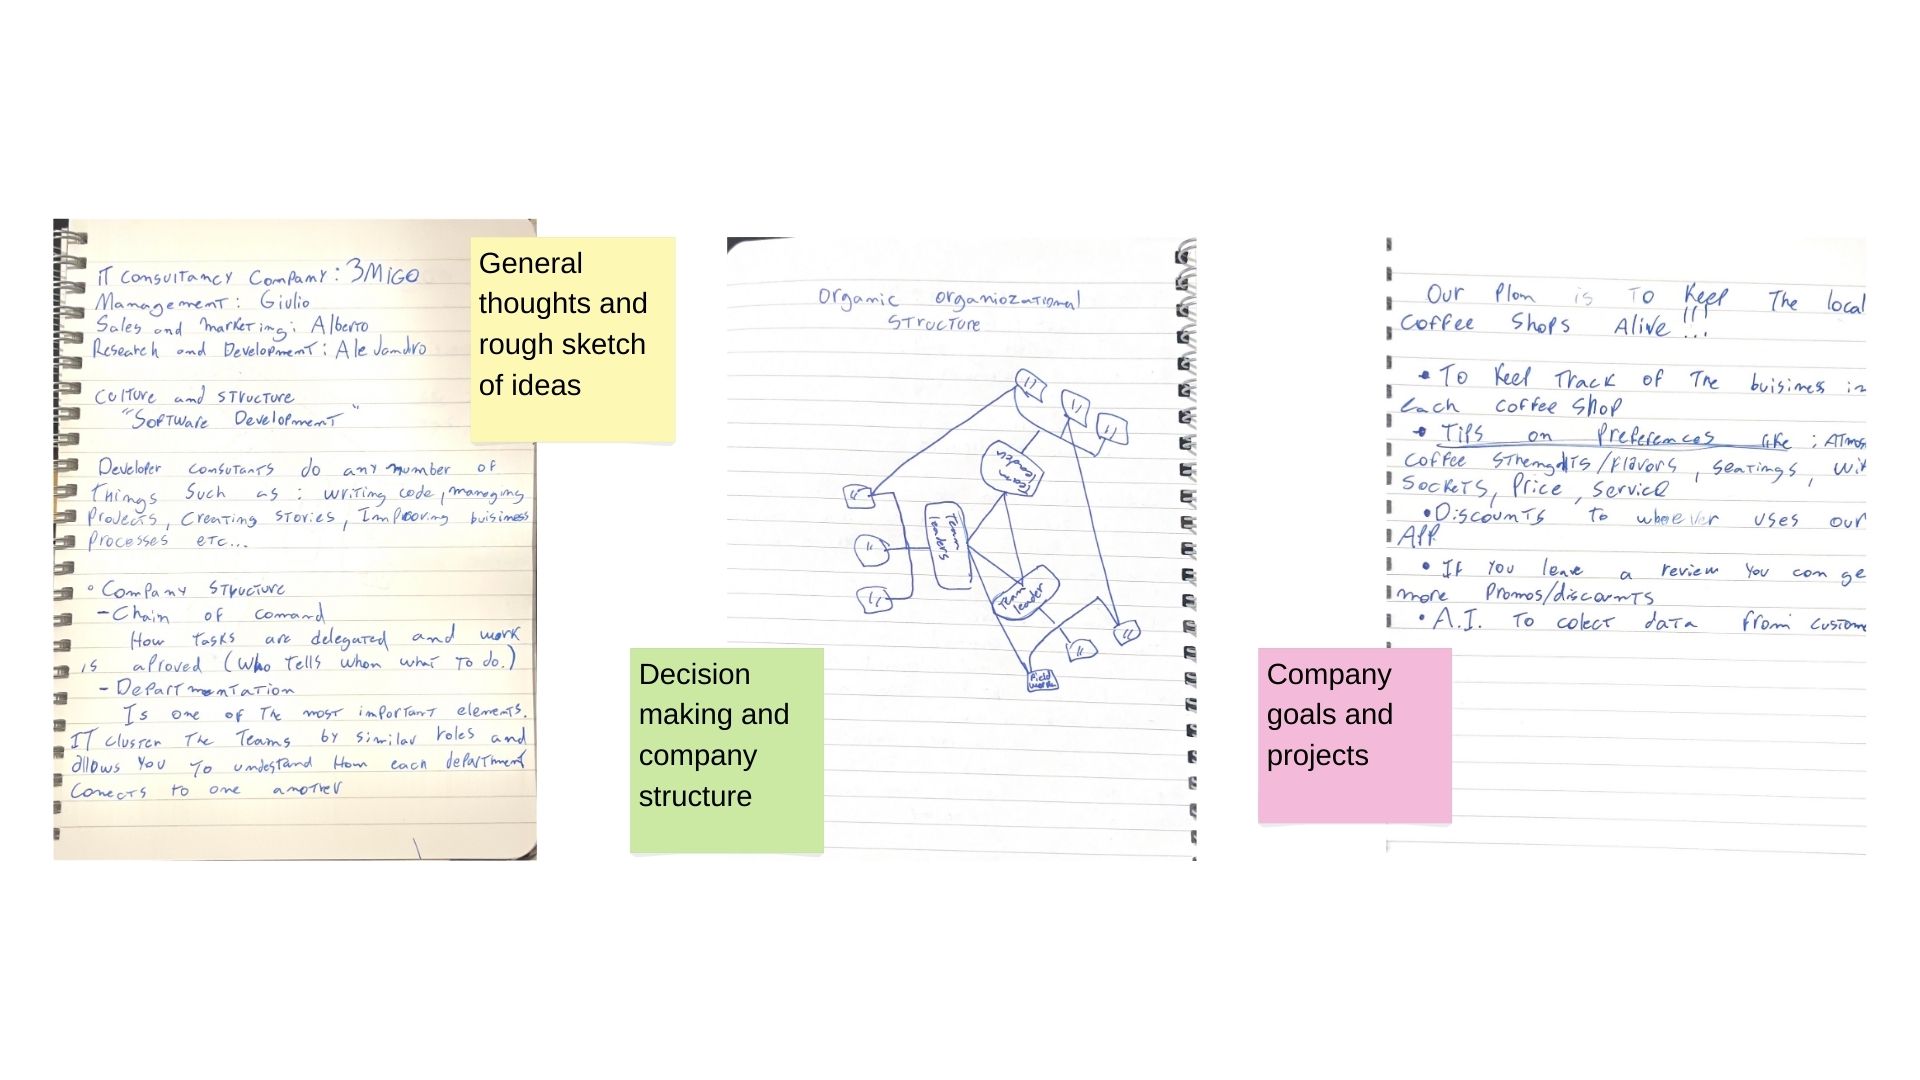 IT Consultancy Company: 3MiGO
Management: Giulio
Sales and marketing: Alberto
Research and Development: Alejandro
Colture and structure
"Software Development"
Developer consutants do any number of
things such as: writing code, managing
Projects, Creating stories, Improoving buisiness
Processes etc...
• Company Structure
- Chain of comand
How tasks are delegated and work
is aproved (Who tells whom what to do.)
- Departmentation
Is one of the most important elements.
IT cluster the Teams by similar roles and
allows you to undestand How each department
Conects to one another
General
thoughts and
rough sketch
of ideas
Organic organiozational
Structure
Team
leader
Team
leaders
Team
leader
Field
work
Decision
making and
company
structure
Our Plan is to Keep the local
Coffee Shops Alive!!!...
• To Keep Track of The buisiness in
each coffee shop
• Tips on Preferences like: Atmos
coffee /Flavors, seatings, wit
Sockets, Price, Service
• Discounts to whoever uses our
App
• If you leave a review you can ge
more Promos/discounts
• A.I. to colect data from custome
Company
goals and
projects